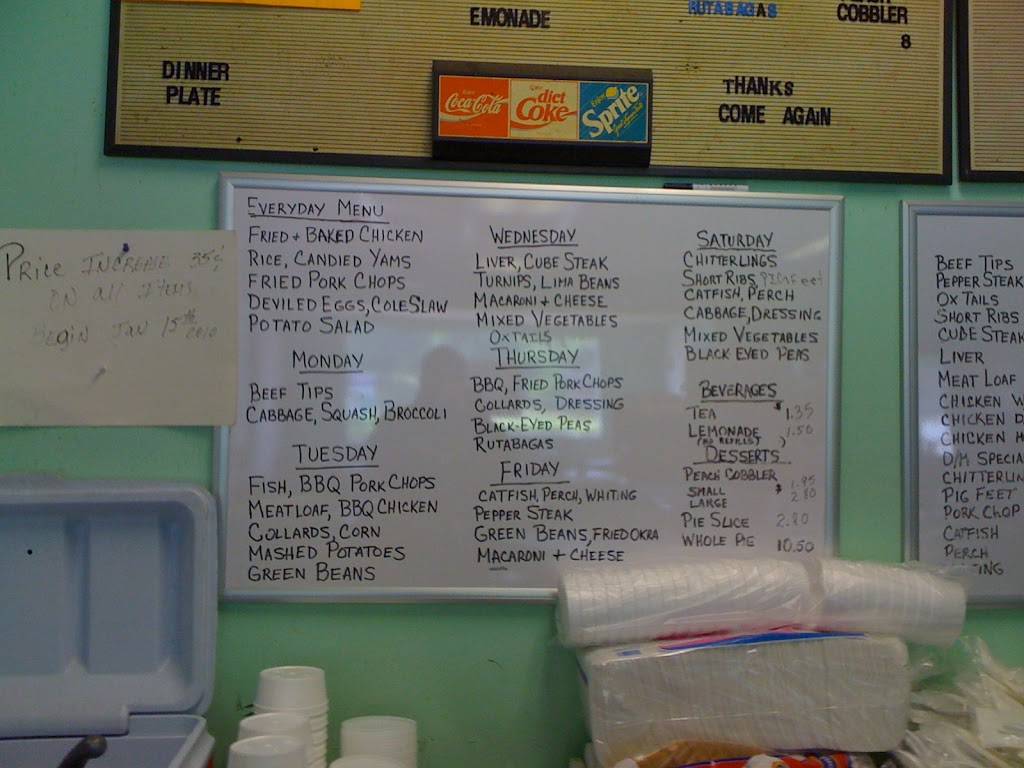 EMONADE
RUTABAGAS
COBBLER
8
DINNER
PLATE
Coca-Cola
diet
Coke
Enjoy
Sprite
THANKS
COME AGAIN
PRICE INCREASE 35¢
ON all Items
Begin JAN 15th 2010
EVERYDAY MENU
FRIED + BAKED CHICKEN
RICE, CANDIED YAMS
FRIED PORK CHOPS
DEVILED EGGS, COLE SLAW
POTATO SALAD
MONDAY
BEEF TIPS
CABBAGE, SQUASH, BROCCOLI
TUESDAY
FISH, BBQ PORK CHOPS
MEATLOAF, BBQ CHICKEN
COLLARDS, CORN
MASHED POTATOES
GREEN BEANS
WEDNESDAY
LIVER, CUBE STEAK
TURNIPS, LIMA BEANS
MACARONI + CHEESE
MIXED VEGETABLES
OXTAILS
THURSDAY
BBQ, FRIED PORK CHOPS
COLLARDS, DRESSING
BLACK-EYED PEAS
RUTABAGAS
FRIDAY
CATFISH, PERCH, WHITING
PEPPER STEAK
GREEN BEANS, FRIED OKRA
MACARONI + CHEESE
SATURDAY
CHITTERLINGS
SHORT RIBS,
CATFISH, PERCH
CABBAGE, DRESSING
MIXED VEGETABLES
BLACK EYED PEAS
BEVERAGES
TEA $1.35
LEMONADE 1.50
(NO REFILLS)
DESSERTS
PEACH COBBLER
SMALL $1.95
LARGE 2.80
PIE SLICE 2.80
WHOLE PIE 10.50
BEEF TIPS
PEPPER STEAK
OX TAILS
SHORT RIBS
CUBE STEAK
LIVER
MEAT LOAF
CHICKEN W
CHICKEN D
CHICKEN H
D/M SPECIA
CHITTERLIN
PIG FEET
PORK CHOP
CATFISH
PERCH
TING